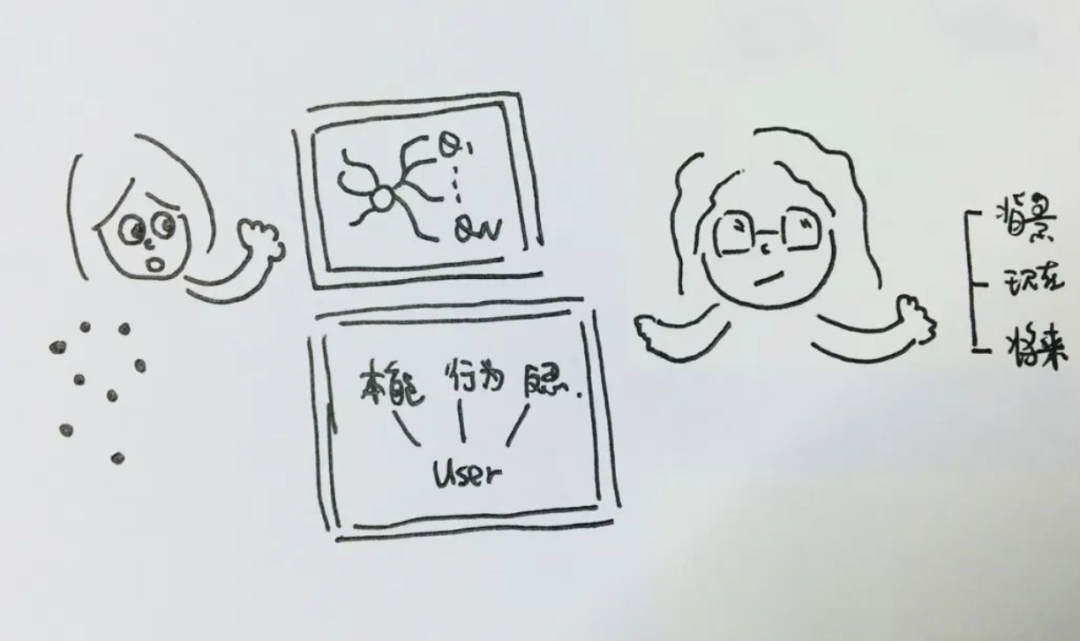 Q1
QN
本能 行为 反思.
User
背景
现在
将来